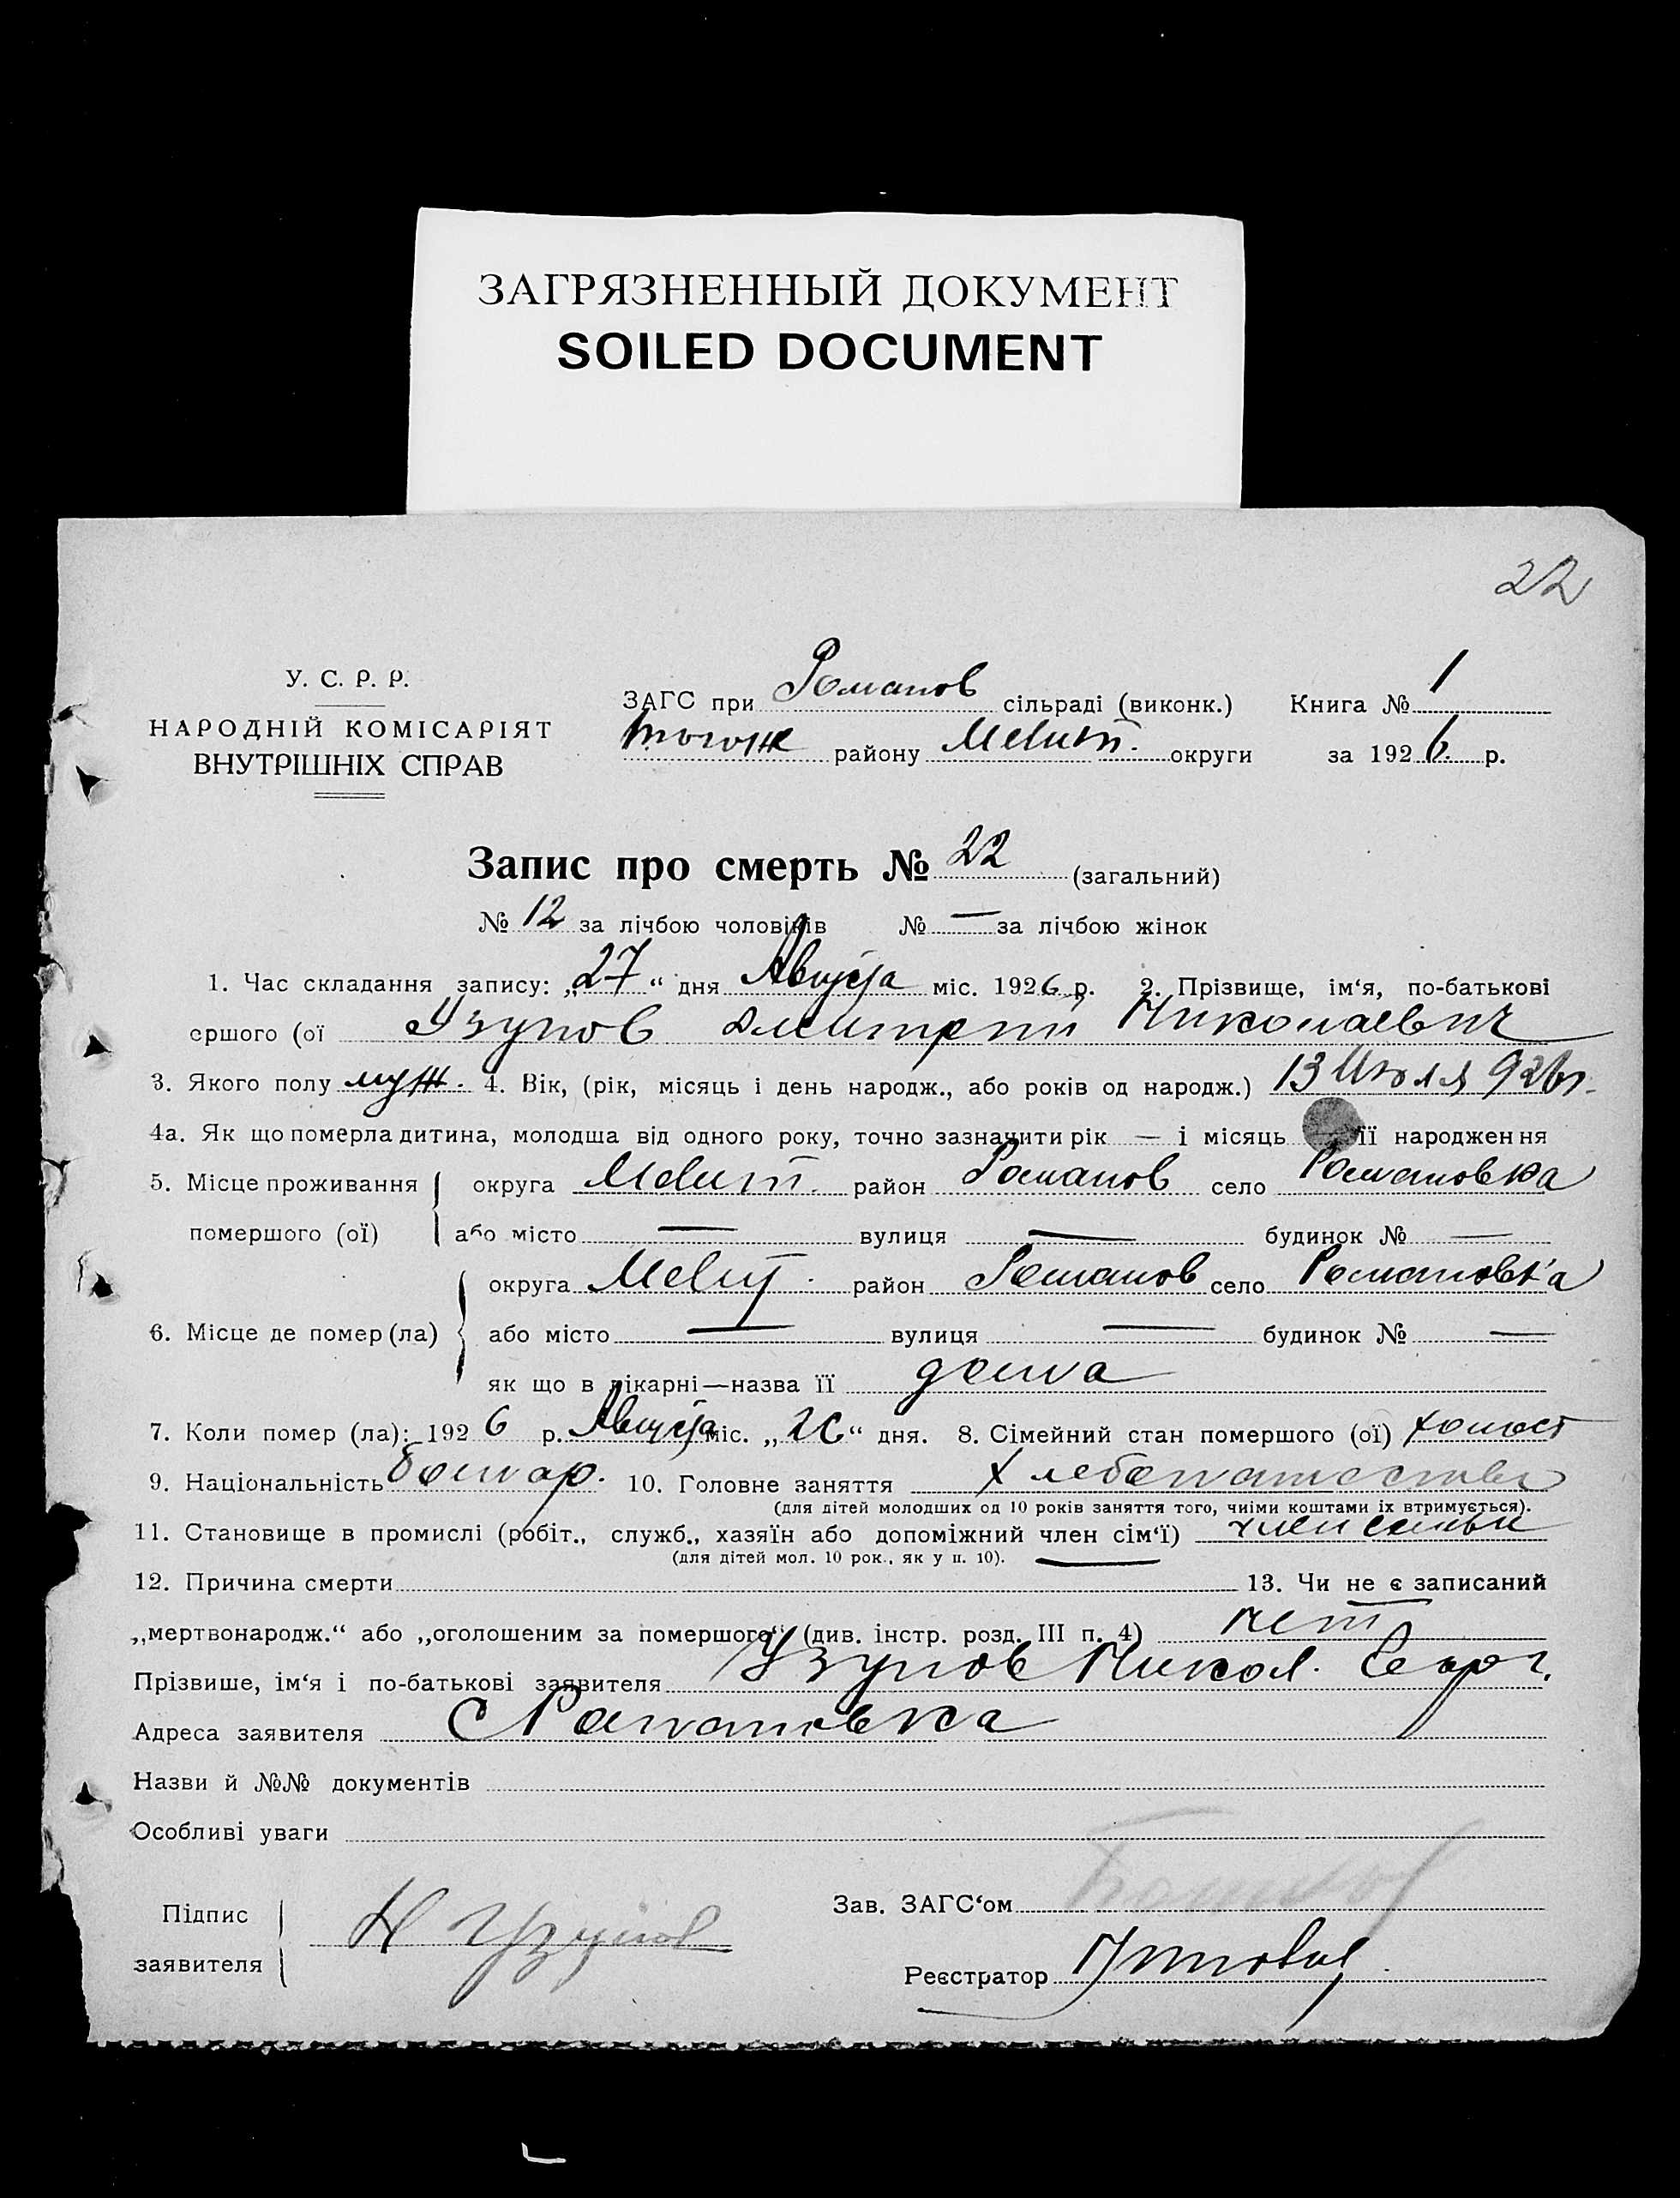 ЗАГРЯЗНЕННЫЙ ДОКУМЕНТ
SOILED DOCUMENT
22
У. С. Р. Р.
НАРОДНІЙ КОМІСАРІЯТ
ВНУТРІШНІХ СПРАВ
ЗАГС при Романов сільраді (виконк.) Книга № 1
району Мелит. округи за 1926 р.
Запис про смерть № 22 (загальний)
№ 12 за лічбою чоловіків № — за лічбою жінок
1. Час складання запису: „27“ дня Августа міс. 1926 р. 2. Прізвище, ім‘я, по-батькові
ершого (ої Узунов Дмитрий Николаевич
3. Якого полу муж. 4. Вік, (рік, місяць і день народж., або років од народж.) 13 Июля 926 г.
4а. Як що померла дитина, молодша від одного року, точно зазначити рік — і місяць — її народження
5. Місце проживання округа Мелит. район Романов село Романовка
помершого (ої) або місто — вулиця — будинок № —
округа Мелит. район Романов село Романовка
6. Місце де помер (ла) або місто — вулиця — будинок № —
як що в лікарні—назва її дома
7. Коли помер (ла): 1926 р. Августа міс. „26“ дня. 8. Сімейний стан помершого (ої) холост
9. Національність болгар. 10. Головне заняття хлебопашество
(для дітей молодших од 10 років заняття того, чиїми коштами їх втримується).
11. Становище в промислі (робіт., служб., хазяїн або допоміжний член сім‘ї) член семьи
(для дітей мол. 10 рок., як у п. 10).
12. Причина смерти — 13. Чи не є записаний
„мертвонародж.“ або „оголошеним за помершого“ (див. інстр. розд. III п. 4) нет
Прізвише, ім‘я і по-батькові заявителя Узунов Никол. Георг.
Адреса заявителя С Романовка
Назви й №№ документів
Особливі уваги
Підпис
заявителя
Н Узунов
Зав. ЗАГС‘ом
Реєстратор